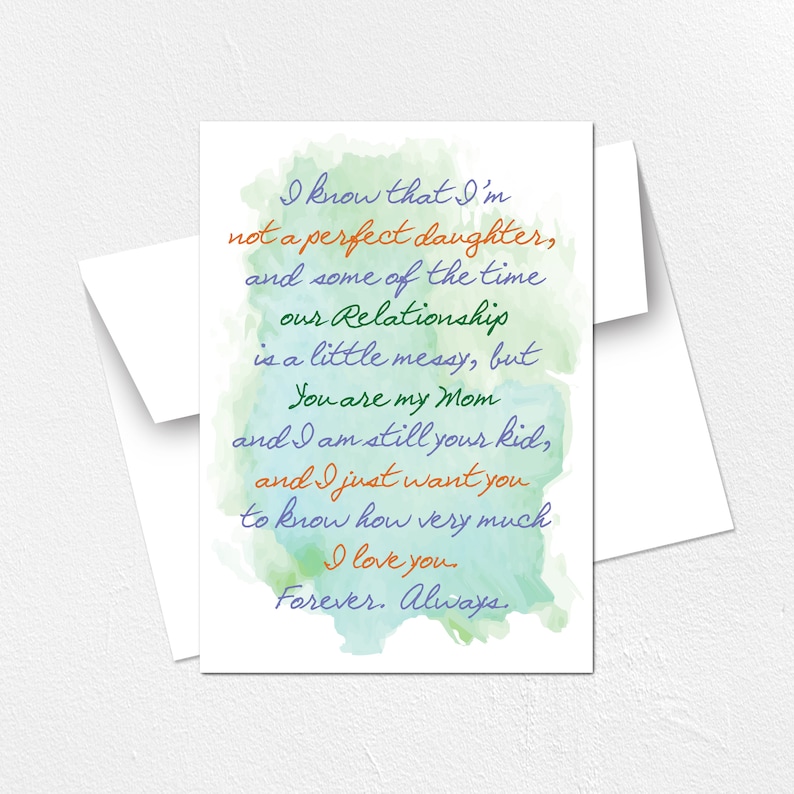 I know that I'm
not a perfect daughter,
and some of the time
our Relationship
is a little messy, but
You are my Mom
and I am still your kid,
and I just want you
to know how very much
I love you.
Forever. Always.